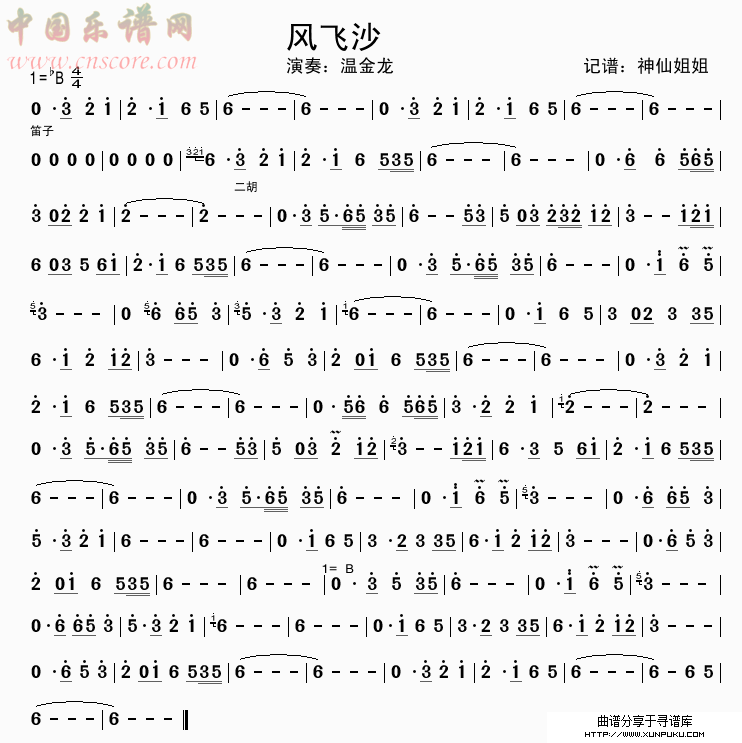 中国乐谱网
www.cnscore.com
风飞沙
演奏：温金龙 记谱：神仙姐姐
1=♭B 4/4
0 · 3 2 1 | 2 · 1 6 5 | 6 - - - | 6 - - - | 0 · 3 2 1 | 2 · 1 6 5 | 6 - - - | 6 - - - |
笛子
0 0 0 0 | 0 0 0 0 | 321 6 · 3 2 1 | 2 · 1 6 535 | 6 - - - | 6 - - - | 0 · 6 6 565 |
二胡
3 02 2 1 | 2 - - - | 2 - - - | 0 · 3 5 · 65 35 | 6 - - 53 | 5 03 232 12 | 3 - - 121 |
6 03 5 61 | 2 · 1 6 535 | 6 - - - | 6 - - - | 0 · 3 5 · 65 35 | 6 - - - | 0 · 1 6 5 |
5 3 - - - | 0 5 6 65 3 | 3 5 · 3 2 1 | 1 6 - - - | 6 - - - | 0 · 1 6 5 | 3 02 3 35 |
6 · 1 2 12 | 3 - - - | 0 · 6 5 3 | 2 01 6 535 | 6 - - - | 6 - - - | 0 · 3 2 1 |
2 · 1 6 535 | 6 - - - | 6 - - - | 0 · 56 6 565 | 3 · 2 2 1 | 1 2 - - - | 2 - - - |
0 · 3 5 · 65 35 | 6 - - 53 | 5 03 2 12 | 2 3 - - 121 | 6 · 3 5 61 | 2 · 1 6 535 |
6 - - - | 6 - - - | 0 · 3 5 · 65 35 | 6 - - - | 0 · 1 6 5 | 5 3 - - - | 0 · 6 65 3 |
5 · 3 2 1 | 6 - - - | 6 - - - | 0 · 1 6 5 | 3 · 2 3 35 | 6 · 1 2 12 | 3 - - - | 0 · 6 5 3 |
1= B
2 01 6 535 | 6 - - - | 6 - - - | 0 · 3 5 35 | 6 - - - | 0 · 1 6 5 | 5 3 - - - |
0 · 6 65 3 | 5 · 3 2 1 | 1 6 - - - | 6 - - - | 0 · 1 6 5 | 3 · 2 3 35 | 6 · 1 2 12 | 3 - - - |
0 · 6 5 3 | 2 01 6 535 | 6 - - - | 6 - - - | 0 · 3 2 1 | 2 · 1 6 5 | 6 - - - | 6 - 6 5 |
6 - - - | 6 - - - ‖
曲谱分享于寻谱库
HTTP://WWW.XUNPUKU.COM